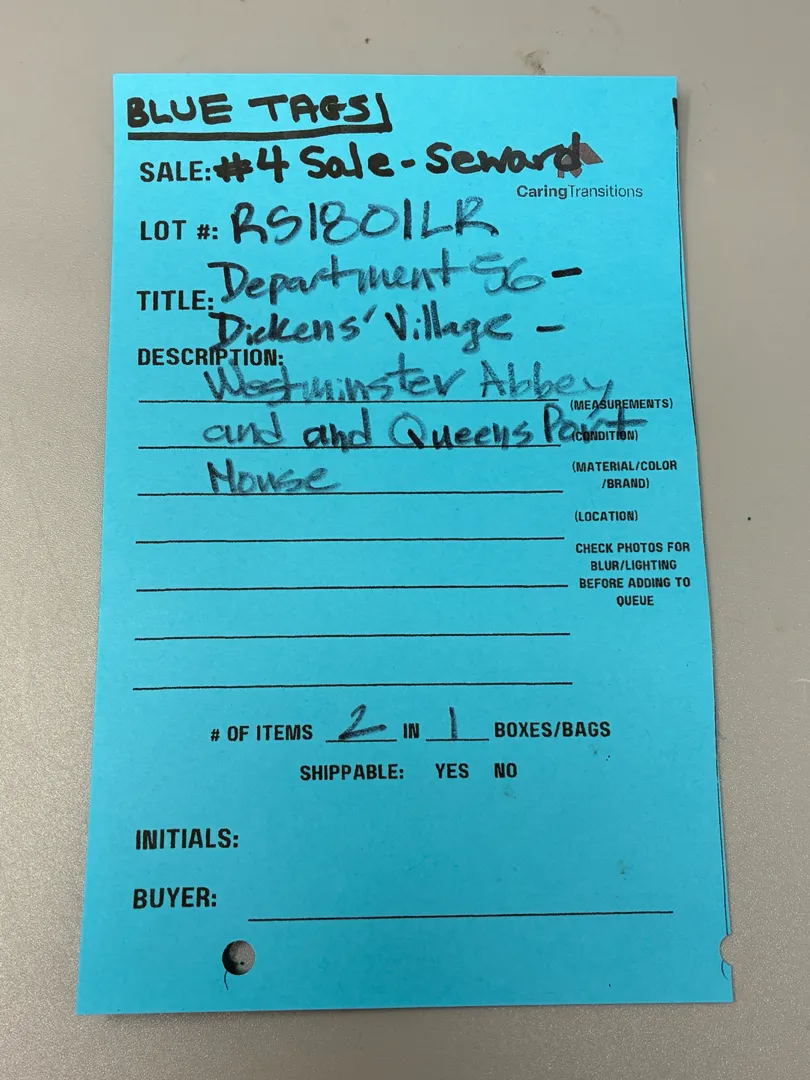 BLUE TAGS
SALE: #4 Sale - Seward
CaringTransitions
LOT #: RS1801LR
TITLE: Department 56 -
Dickens' Village -
DESCRIPTION:
Westminster Abbey
(MEASUREMENTS)
and and Queens Port
(CONDITION)
House
(MATERIAL/COLOR
/BRAND)
(LOCATION)
CHECK PHOTOS FOR
BLUR/LIGHTING
BEFORE ADDING TO
QUEUE
# OF ITEMS 2 IN 1 BOXES/BAGS
SHIPPABLE: YES NO
INITIALS:
BUYER: